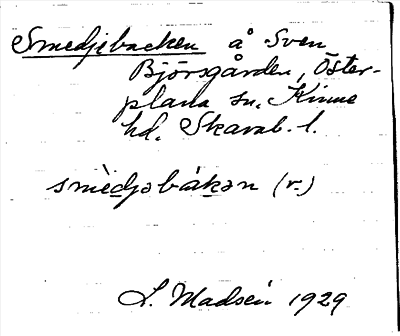 Smedjebacken å Sven
Björsgården, Öster-
plana sn. Kinne
hd. Skarab. l.
smèdjəbákən (v.)
L. Madsén 1929